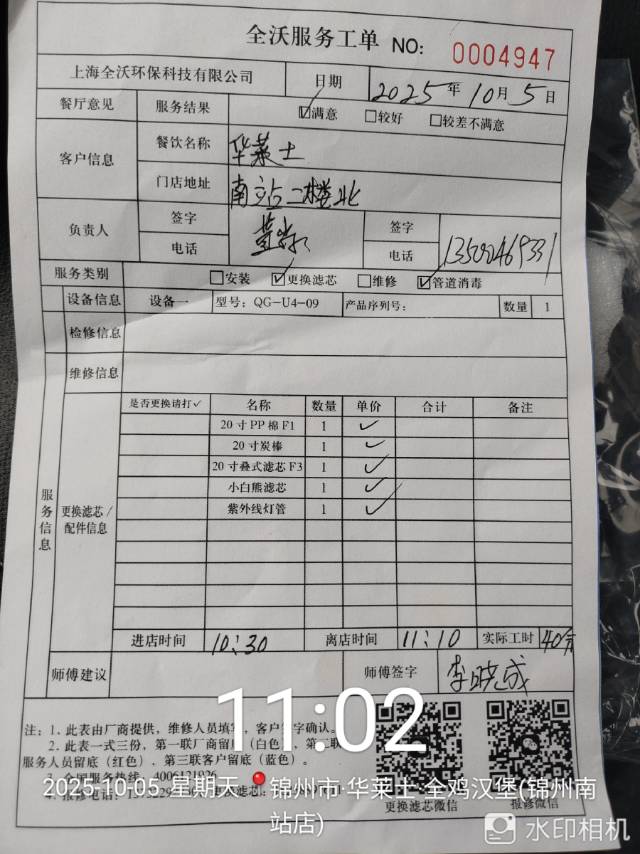 全沃服务工单 NO: 0004947
上海全沃环保科技有限公司 日期 2025年10月5日
餐厅意见 服务结果 ☑满意 □较好 □较差不满意
客户信息 餐饮名称 华莱士
门店地址 南站二楼北
负责人 签字 签字
电话 电话
服务类别 □安装 ☑更换滤芯 □维修 ☑管道消毒
设备信息 设备一 型号: QG-U4-09 产品序列号: 数量 1
检修信息
维修信息
是否更换请打✓ 名称 数量 单价 合计 备注
20寸PP棉F1 1 ✓
20寸炭棒 1 ✓
20寸叠式滤芯F3 1 ✓
小白熊滤芯 1 ✓
紫外线灯管 1 ✓
服务信息
更换滤芯/
配件信息
进店时间 10:30 离店时间 11:10 实际工时 40分
师傅建议 师傅签字 李晓成
注: 1. 此表由厂商提供, 维修人员填写, 客户签字确认。
2. 此表一式三份, 第一联厂商留底(白色), 第二联
服务人员留底(红色)、第三联客户留底(蓝色)。
3. 全国服务热线:
4. 报修电话:
更换滤芯微信 报修微信
11:02
2025-10-05 星期天 锦州市·华莱士·全鸡汉堡(锦州南
站店)
水印相机